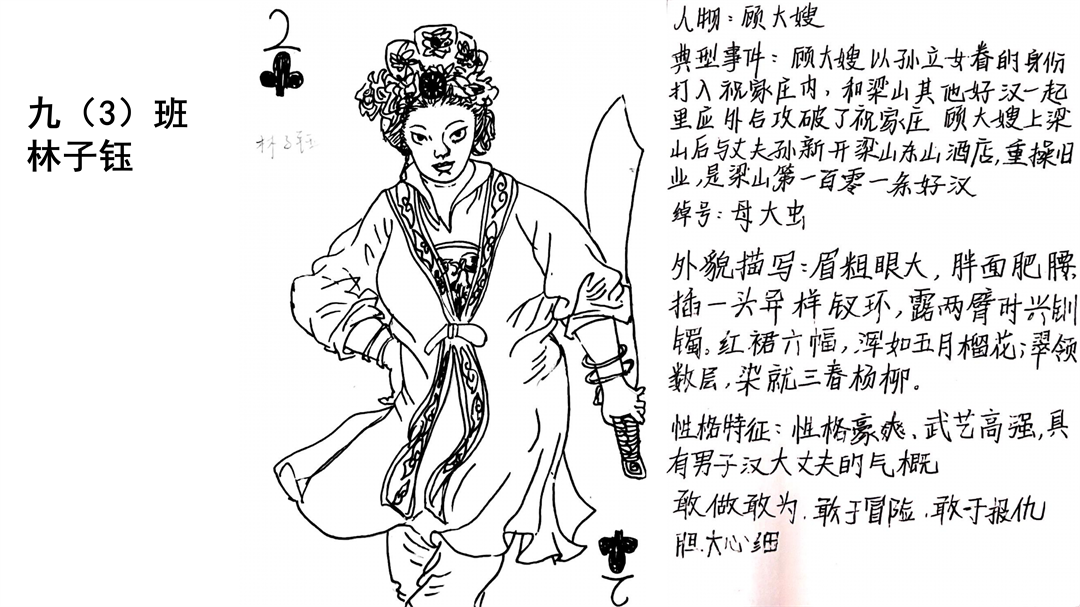 九（3）班
林子钰
2
林子钰
人物：顾大嫂
典型事件：顾大嫂以孙立女眷的身份
打入祝家庄内，和梁山其他好汉一起
里应外合攻破了祝家庄 顾大嫂上梁
山后与丈夫孙新开梁山东山酒店，重操旧
业，是梁山第一百零一条好汉
绰号：母大虫
外貌描写：眉粗眼大，胖面肥腰
插一头异样钗环，露两臂时兴钏
镯。红裙六幅，浑如五月榴花；翠领
数层，染就三春杨柳。
性格特征：性格豪爽、武艺高强，具
有男子汉大丈夫的气概
敢做敢为、敢于冒险、敢于报仇
胆大心细
2